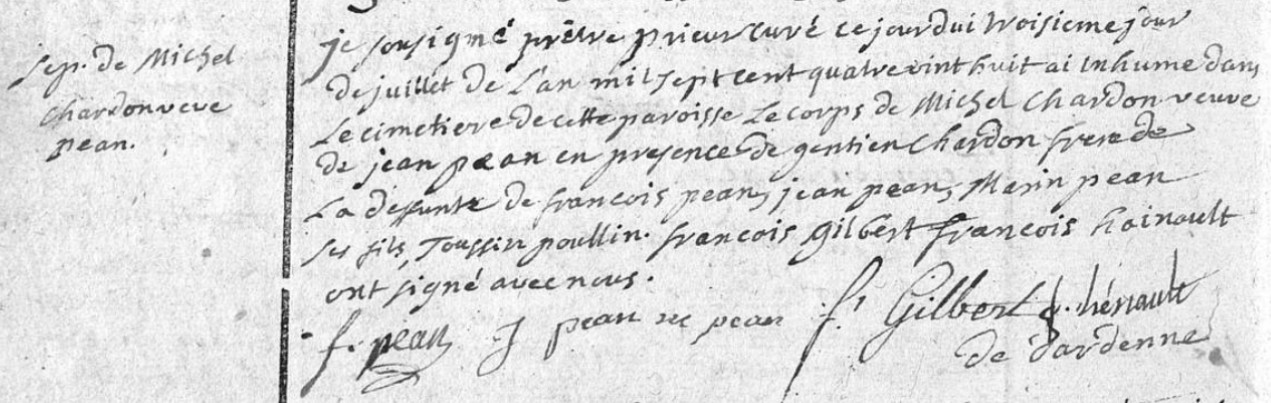 sep. de Michel
chardon veve
pean.
je sousigné prêtre prieur curé ce jourdui troisieme jour
de juillet de l'an mil sept cent quatre vint huit ai inhume dans
le cimetiere de cette paroisse le corps de Michel chardon veuve
de jean pean en presence de gentien chardon frere de
la defunte de francois pean, jean pean, Marin pean
ses fils, Toussin poullin. francois gilbert francois hainault
ont signé avec nous.
f. pean J pean m pean f. Gilbert f. hénault
de dardenne